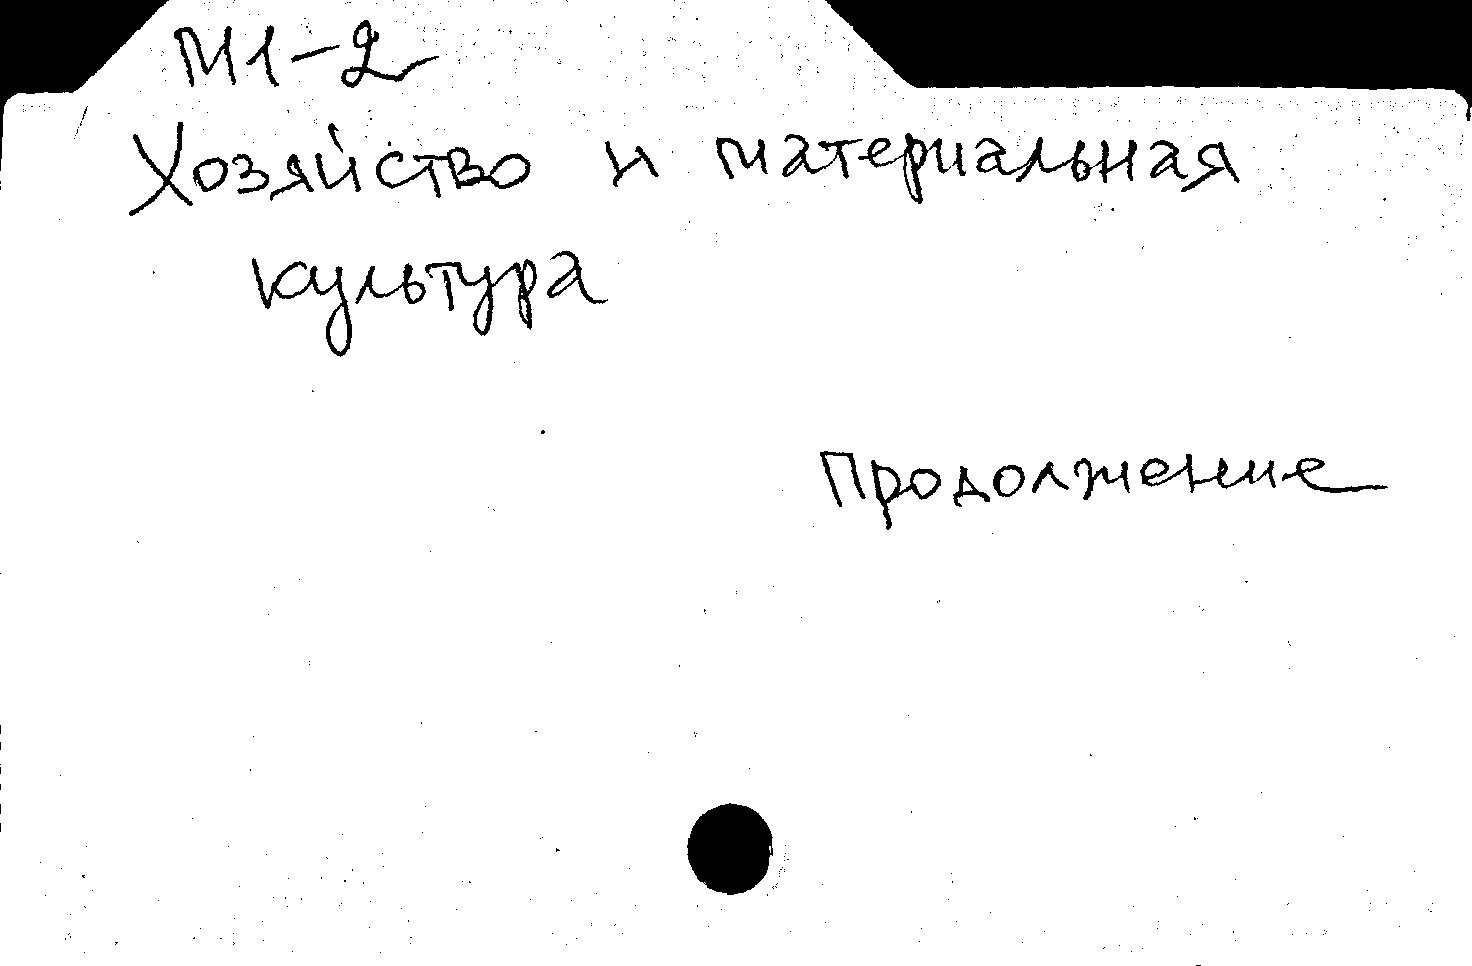 М1-2
Хозяйство и материальная
культура
Продолжение